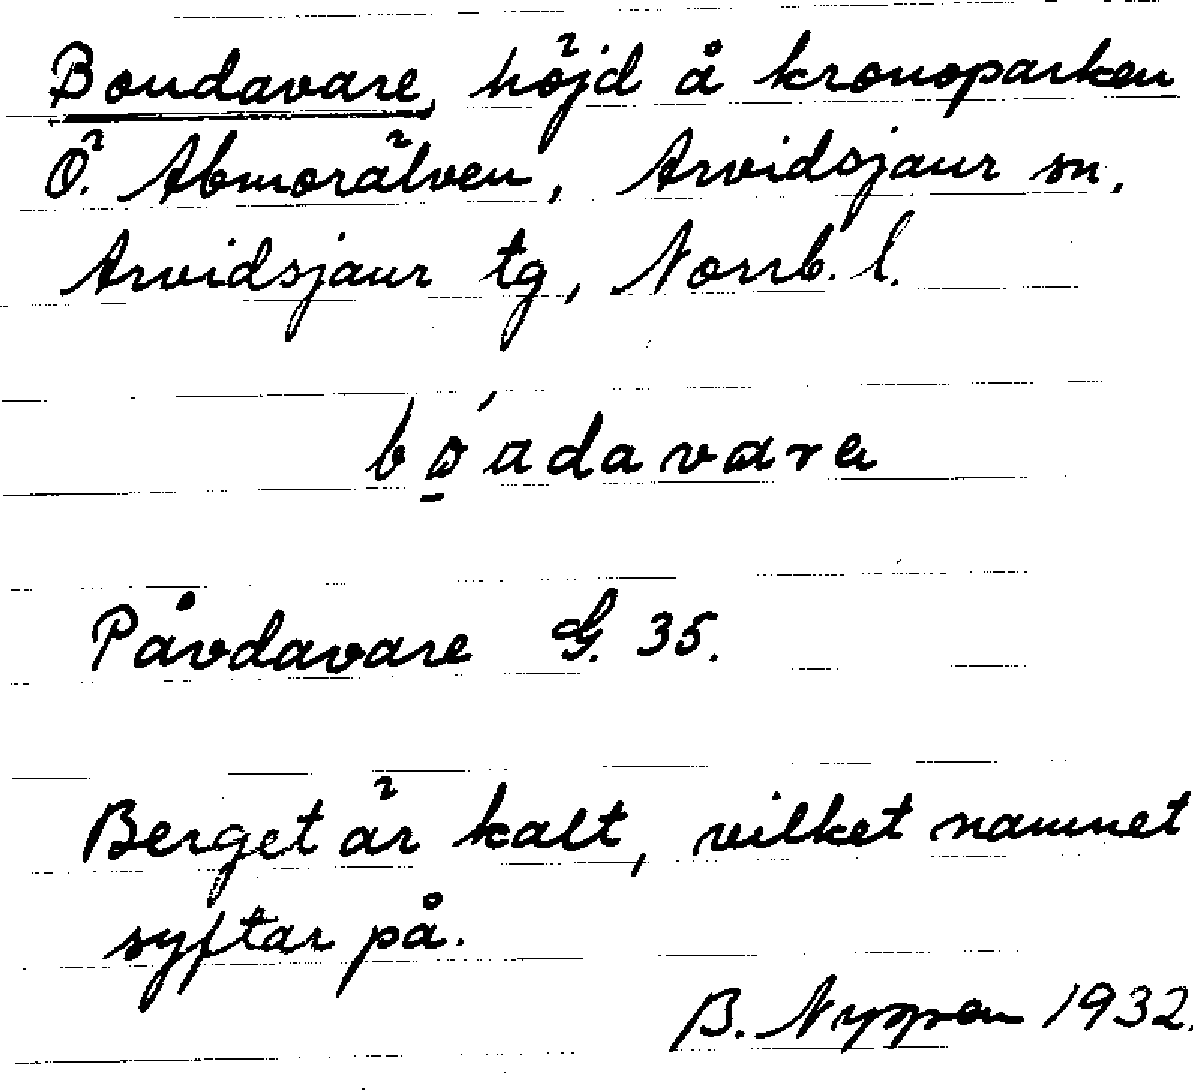 Boudavare, höjd å kronoparken
Ö. Abmorälven, Arvidsjaur sn.
Arvidsjaur tg, Norrb. l.
Påvdavare G. 35.
Berget är kalt, vilket namnet
syftar på.
B. 1932.